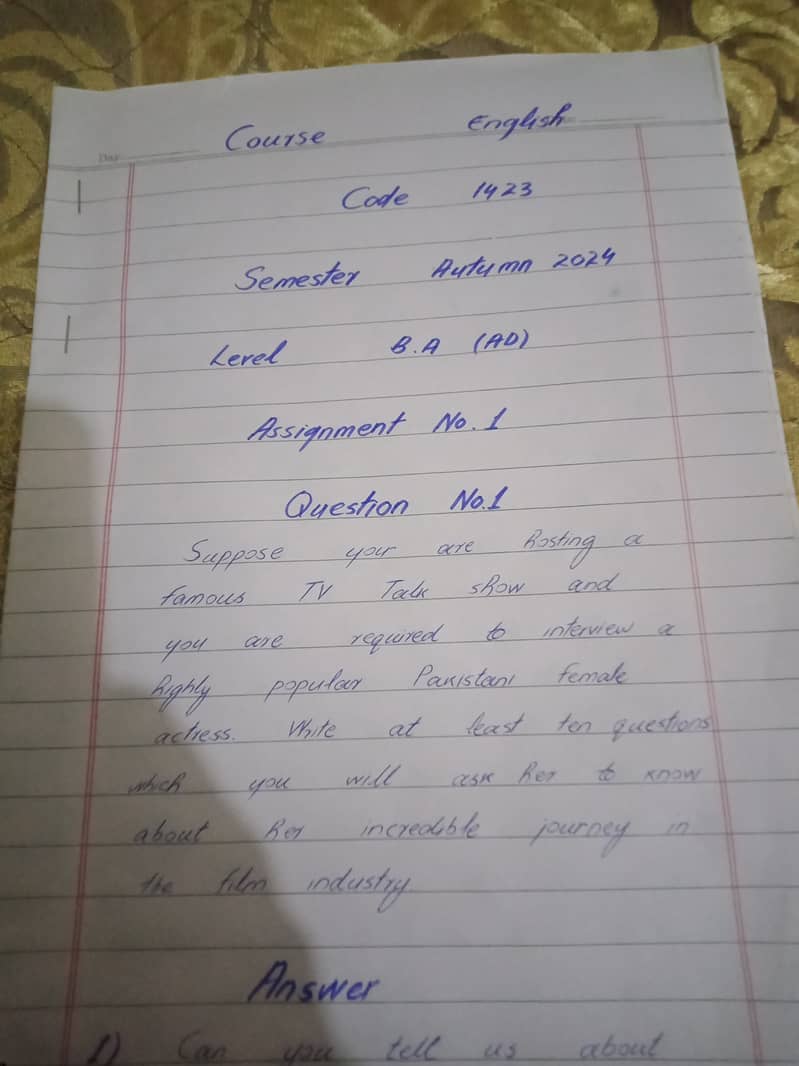 Day
Course English
Code 1423
Semester Autumn 2024
Level B.A (AD)
Assignment No. 1
Question No.1
Suppose your are hosting a
famous TV Talk show and
you are required to interview a
highly popular Pakistani female
actress. Write at least ten questions
which you will ask her to know
about her incredible journey in
the film industry
Answer
1) Can you tell us about